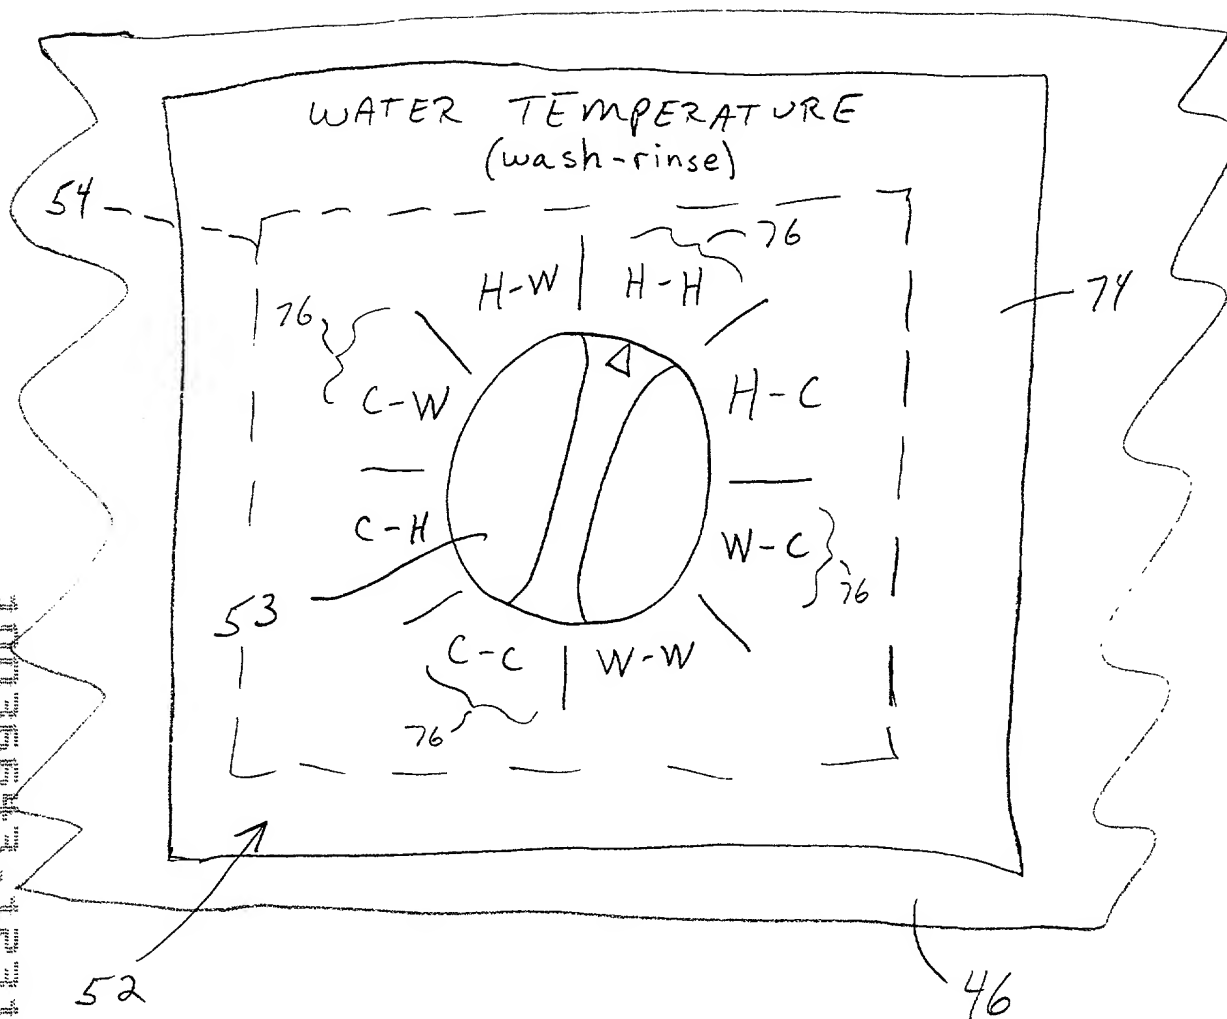 WATER TEMPERATURE
(wash-rinse)
54
76
H-W
H-H
74
76
C-W
H-C
C-H
W-C
76
53
C-C
W-W
76
52
46